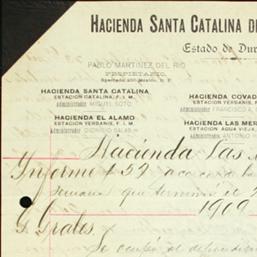 HACIENDA SANTA CATALINA DE
Estado de Dur
PABLO MARTINEZ DEL RIO
PROPIETARIO.
HACIENDA SANTA CATALINA
ESTACION CATALINA, F. I. M.
ADMINISTRADOR MIGUEL SOTO.
HACIENDA COVAD
ESTACION YERBANIS,
ADMINISTRADOR FRANCISCO A
HACIENDA EL ALAMO
ESTACION YERBANIS, F. I. M.
ADMINISTRADOR DIONISIO SALAS
HACIENDA LAS MER
ESTACION AGUA VIEJA,
ADMINISTRADOR ANTONIO
Hacienda Las
Informe # 52
Semana que terminó el 2
1909
G. Grales.
Se ocupó el